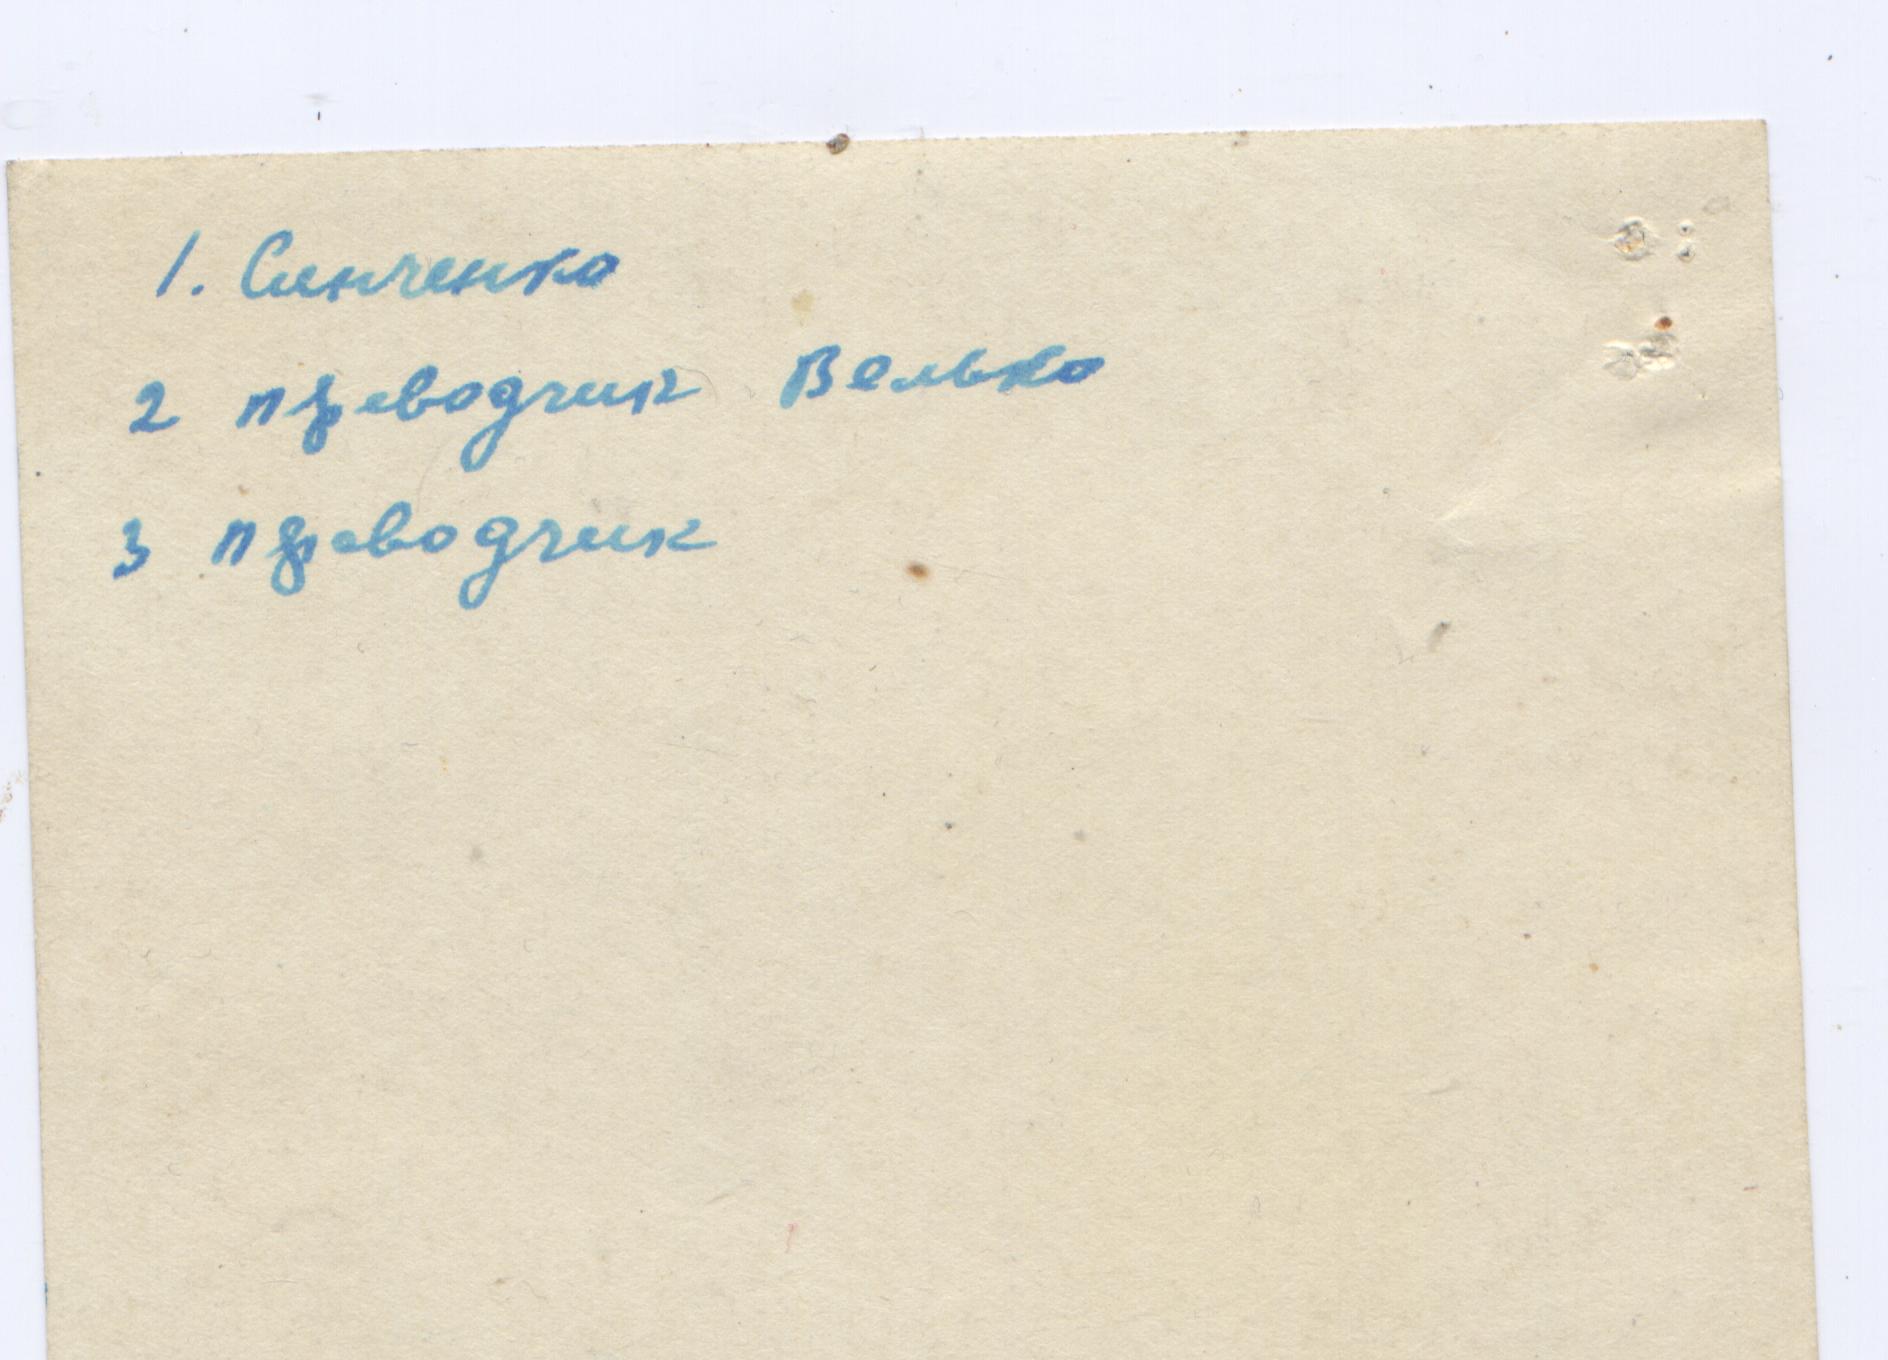 1. Синченко
2 преводчик Велько
3 преводчик